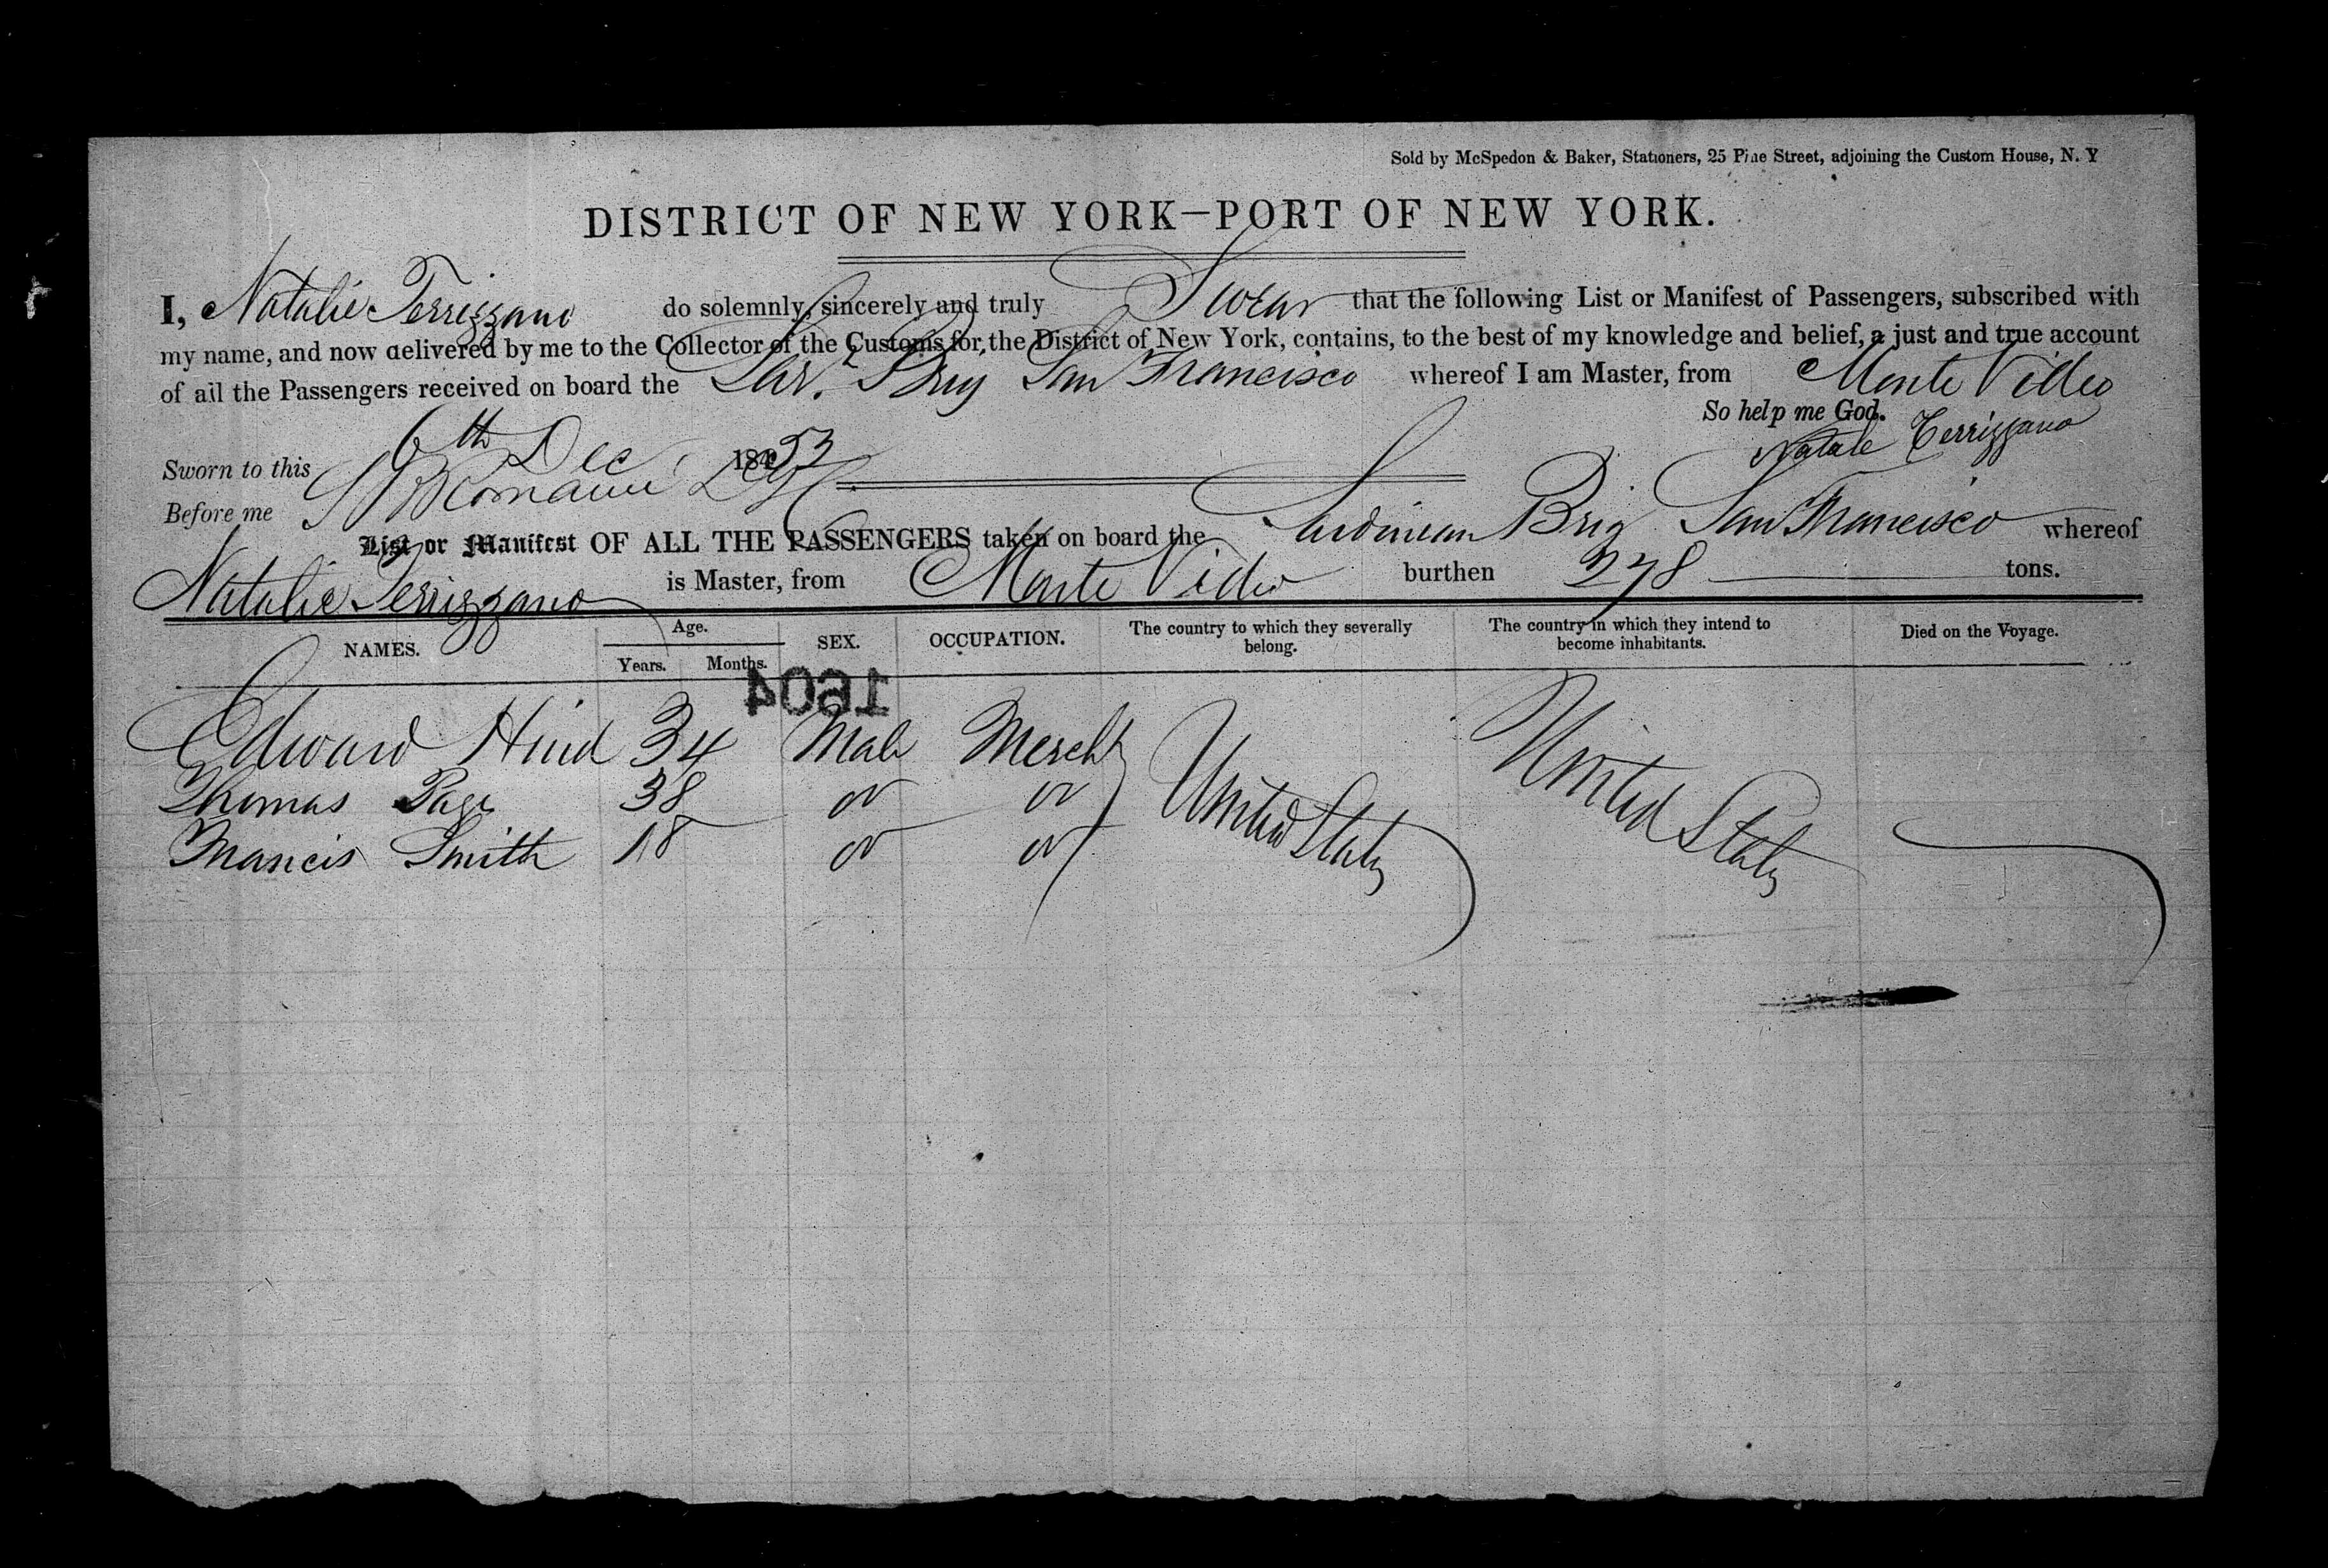 Sold by McSpedon & Baker, Stationers, 25 Pine Street, adjoining the Custom House, N. Y
DISTRICT OF NEW YORK—PORT OF NEW YORK.
I, Natalie Terrizzano do solemnly, sincerely and truly Swear that the following List or Manifest of Passengers, subscribed with
my name, and now delivered by me to the Collector of the Customs for the District of New York, contains, to the best of my knowledge and belief, a just and true account
of all the Passengers received on board the Sar. Brig San Francisco whereof I am Master, from Monte Video
So help me God.
Natale Terrizzano
Sworn to this 6th Dec. 1853
Before me
List or Manifest OF ALL THE PASSENGERS taken on board the Sardinian Brig San Francisco whereof
Natalie Terrizzano is Master, from Monte Video burthen 278 tons.
NAMES. Age. Years. Months. SEX. OCCUPATION. The country to which they severally belong. The country in which they intend to become inhabitants. Died on the Voyage.
1604
Edward Hind 34 Male Mercht United States United States
Thomas Page 38 do do
Francis Smith 18 do do